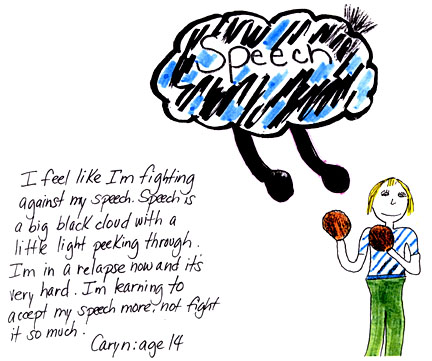 Speech
I feel like I'm fighting
against my speech. Speech is
a big black cloud with a
little light peeking through.
I'm in a relapse now and it's
very hard. I'm learning to
accept my speech more, not fight
it so much.
Caryn: age 14